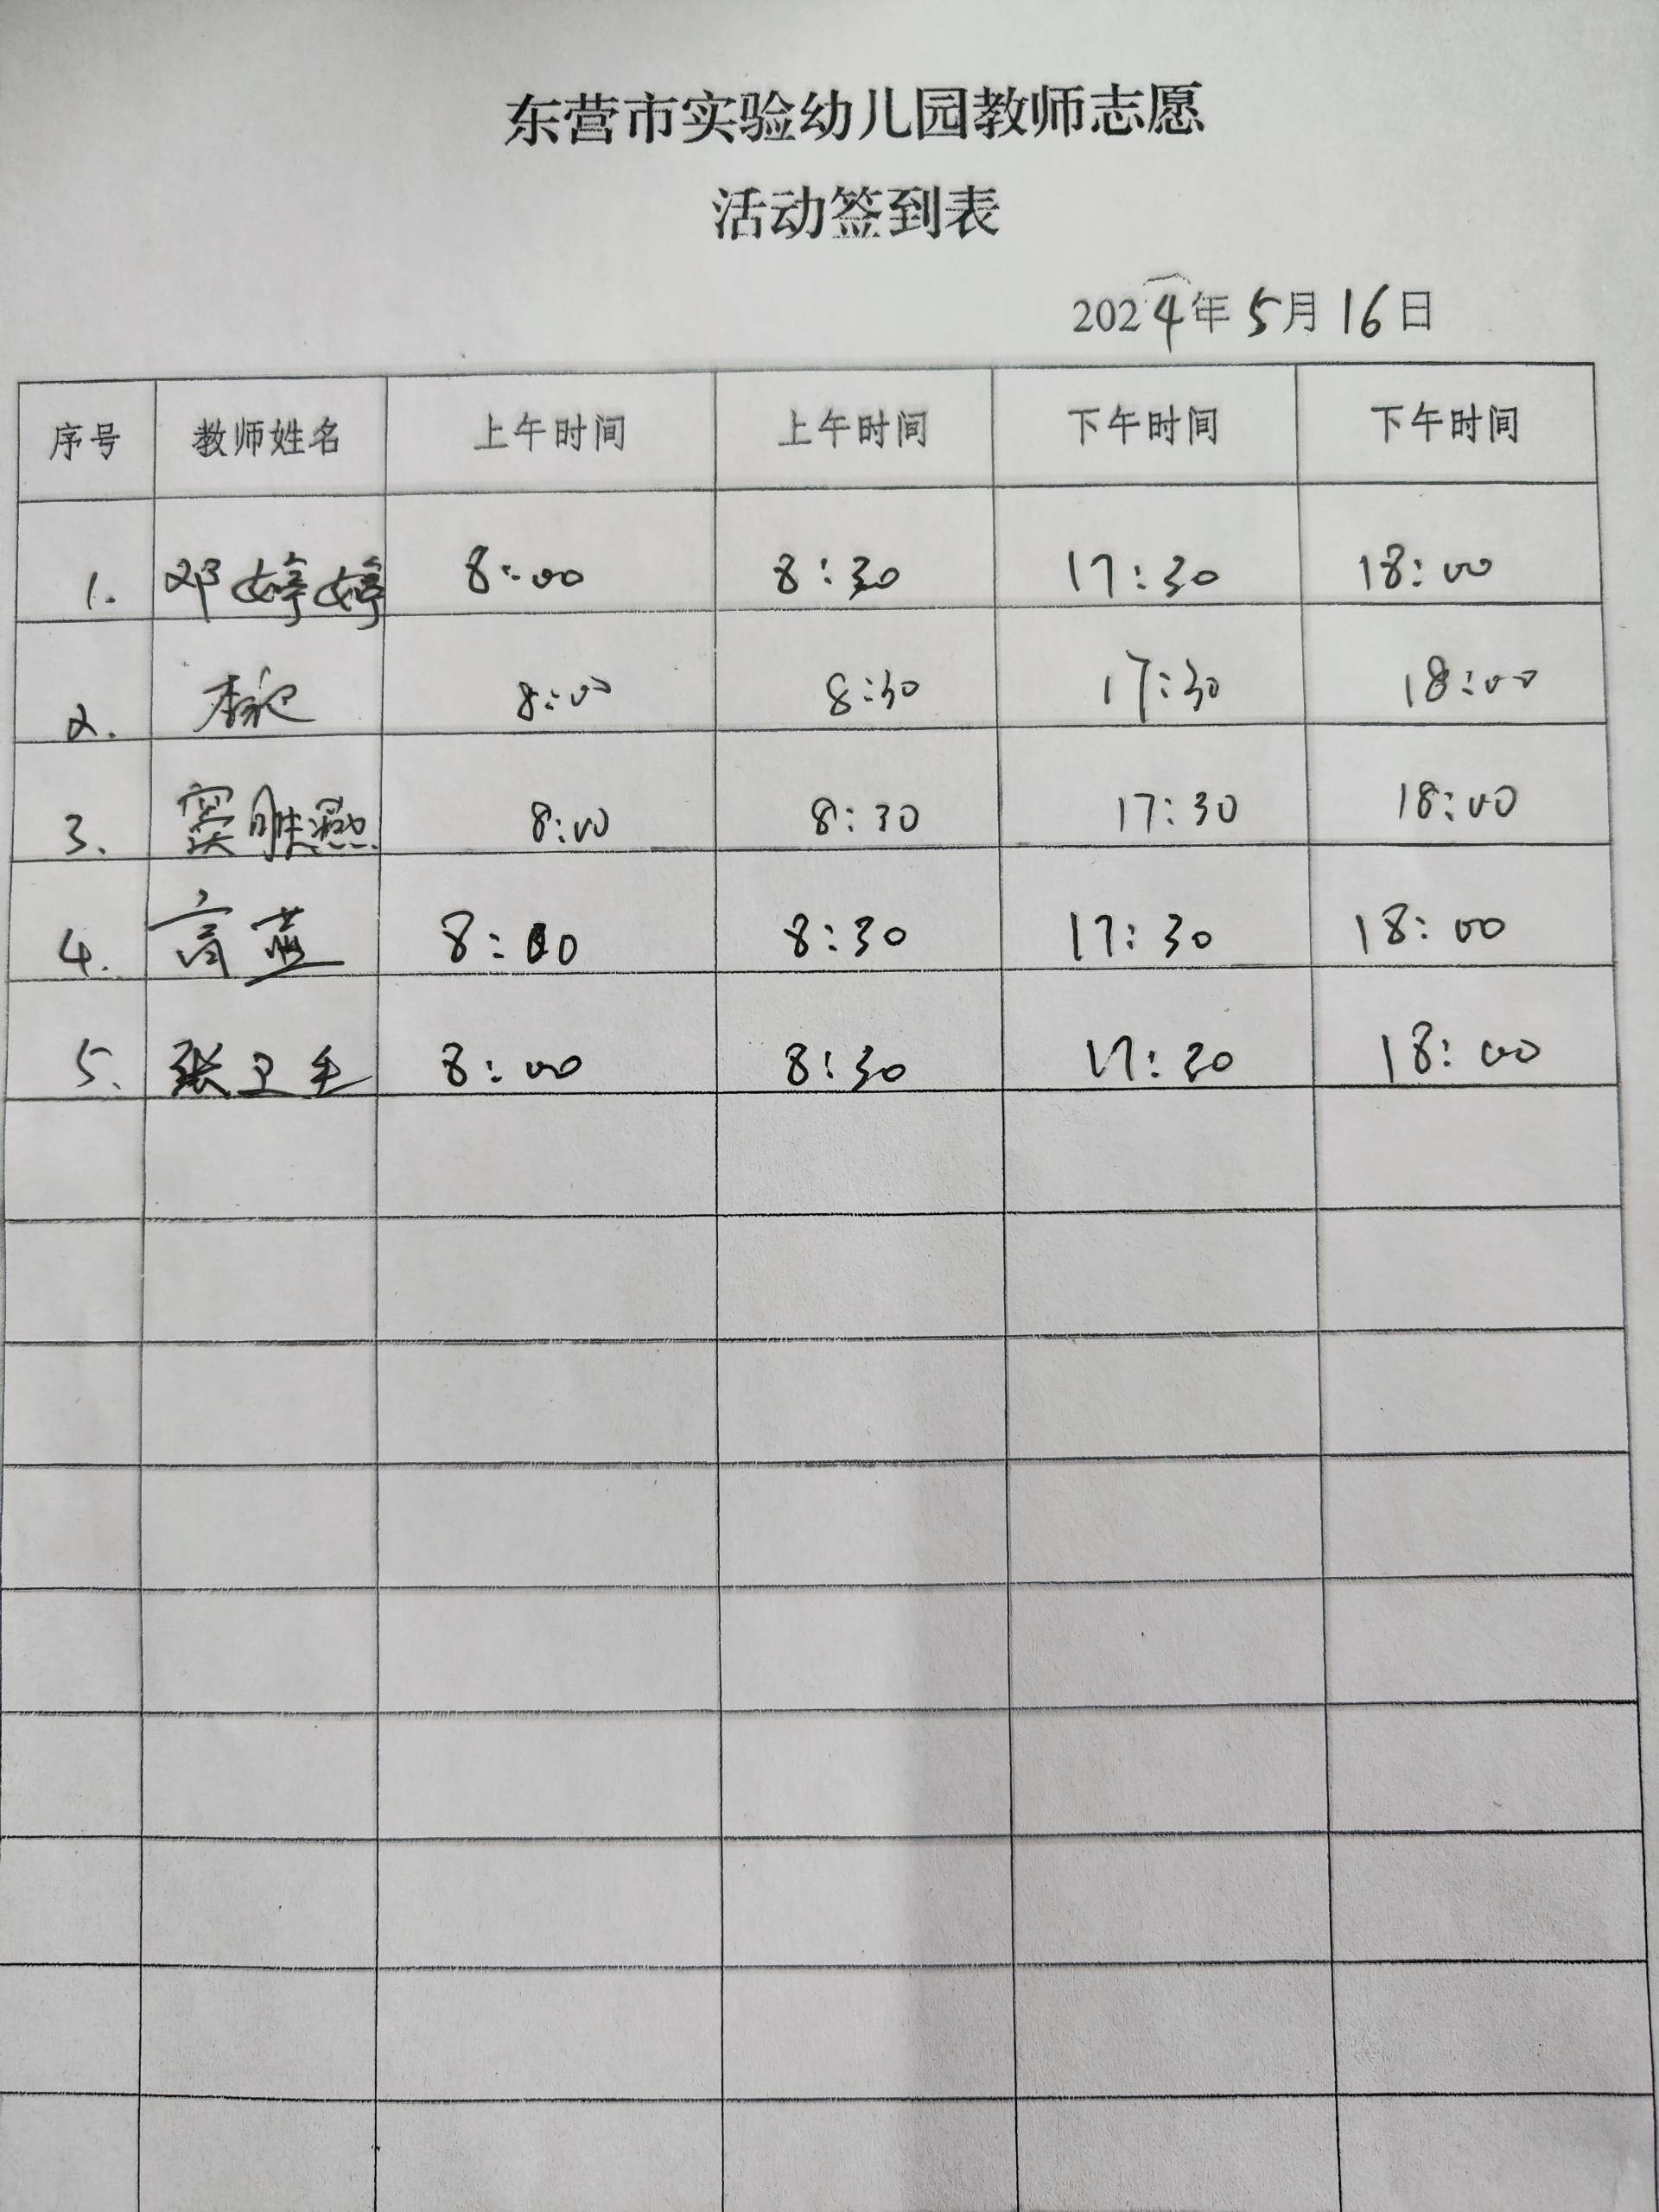 东营市实验幼儿园教师志愿
活动签到表
2024年5月16日
序号 教师姓名 上午时间 上午时间 下午时间 下午时间
1. 邓婷婷 8:00 8:30 17:30 18:00
2. 8:00 8:30 17:30 18:00
3. 窦胜燕 8:00 8:30 17:30 18:00
4. 高燕 8:00 8:30 17:30 18:00
5. 张卫 8:00 8:30 17:30 18:00